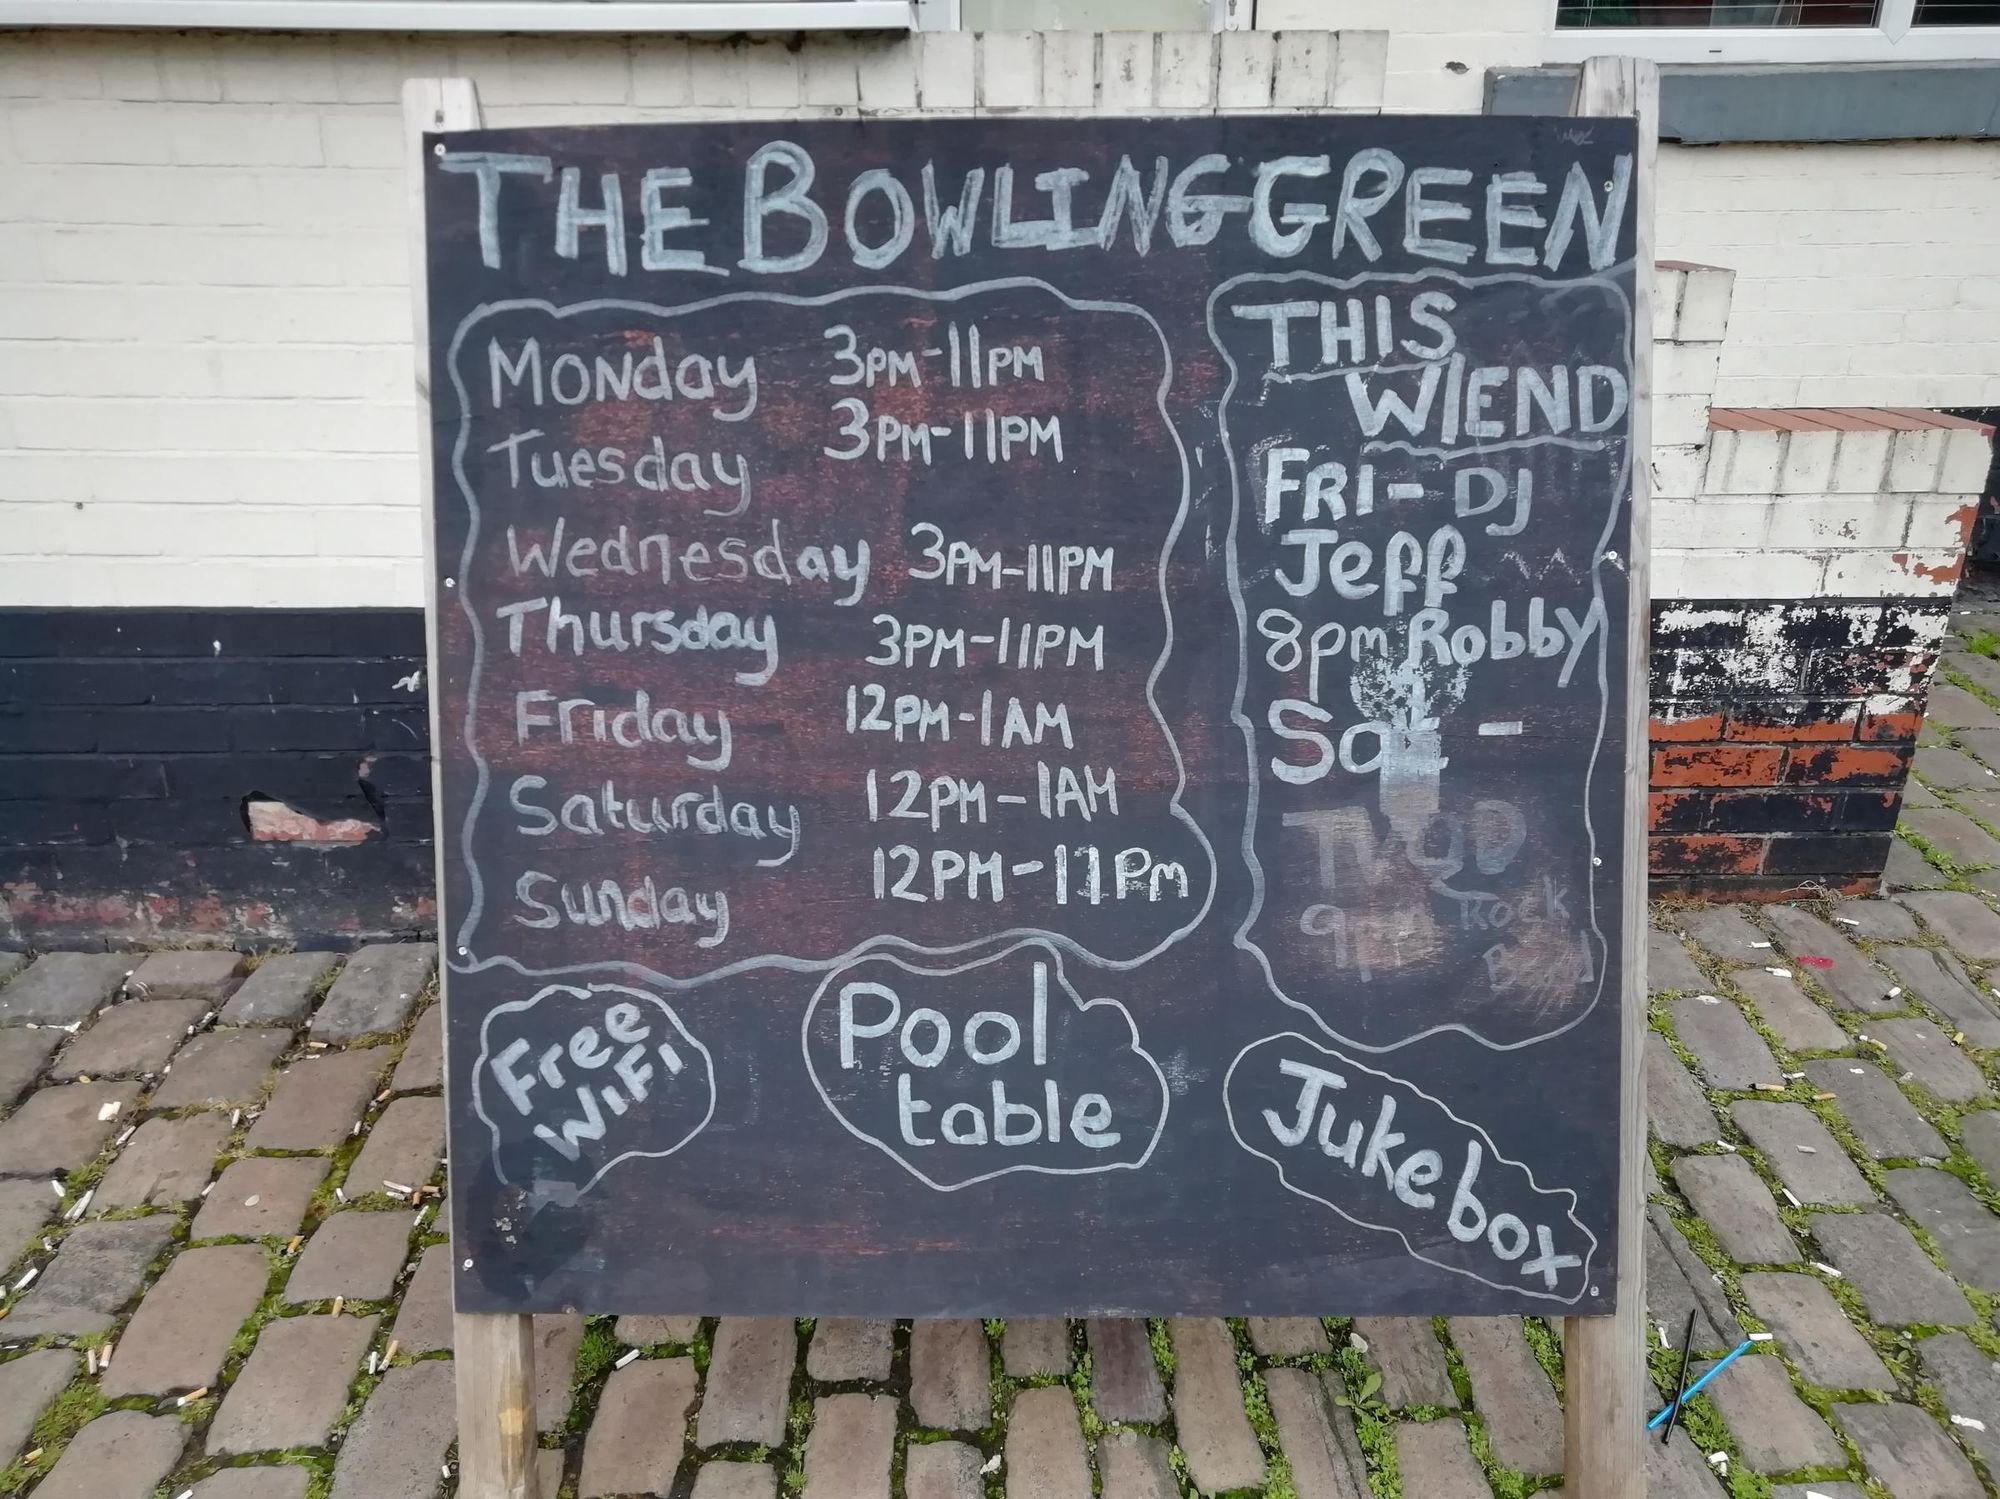 THE BOWLING GREEN
Monday 3PM-11PM
Tuesday 3PM-11PM
Wednesday 3PM-11PM
Thursday 3PM-11PM
Friday 12PM-1AM
Saturday 12PM-1AM
Sunday 12PM-11Pm
THIS
W/END
FRI- DJ
Jeff
8pm Robby
Sat -
9pm Rock
Band
Free
WiFi
Pool
table
Jukebox